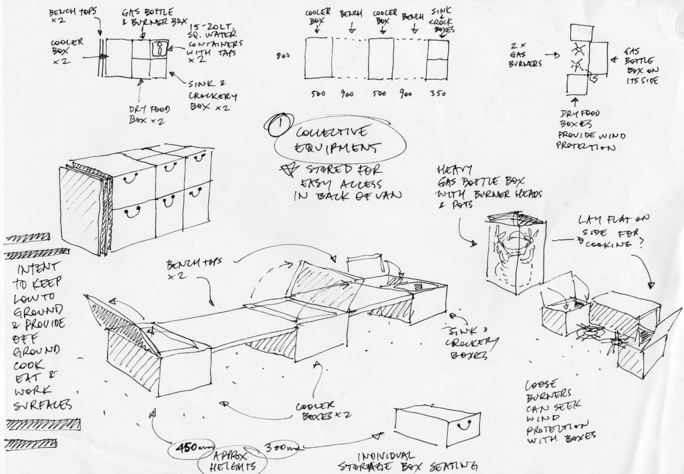 BENCH TOPS
x 2
GAS BOTTLE
& BURNER BOX
15-20LT.
SQ. WATER
CONTAINERS
WITH TAPS
x 2
COOLER
BOX
x 2
SINK &
CROCKERY
BOX x 2
DRY FOOD
BOX x 2
COOLER
BOX
BENCH
COOLER
BOX
BENCH
SINK
&
CROCK
BOXES
800
500
900
500
900
350
2 x
GAS
BURNERS
GAS
BOTTLE
BOX ON
ITS SIDE
DRY FOOD
BOXES
PROVIDE WIND
PROTECTION
1
COLLECTIVE
EQUIPMENT
STORED FOR
EASY ACCESS
IN BACK OF VAN
HEAVY
GAS BOTTLE BOX
WITH BURNER HEADS
& POTS
LAY FLAT ON
SIDE FOR
COOKING?
INTENT
TO KEEP
LOW TO
GROUND
& PROVIDE
OFF
GROUND
COOK
EAT &
WORK
SURFACES
BENCH TOPS
x 2
SINK &
CROCKERY
BOXES
COOLER
BOXES x 2
LOOSE
BURNERS
CAN SEEK
WIND
PROTECTION
WITH BOXES
450mm
APPROX
HEIGHTS
300mm
INDIVIDUAL
STORAGE BOX SEATING